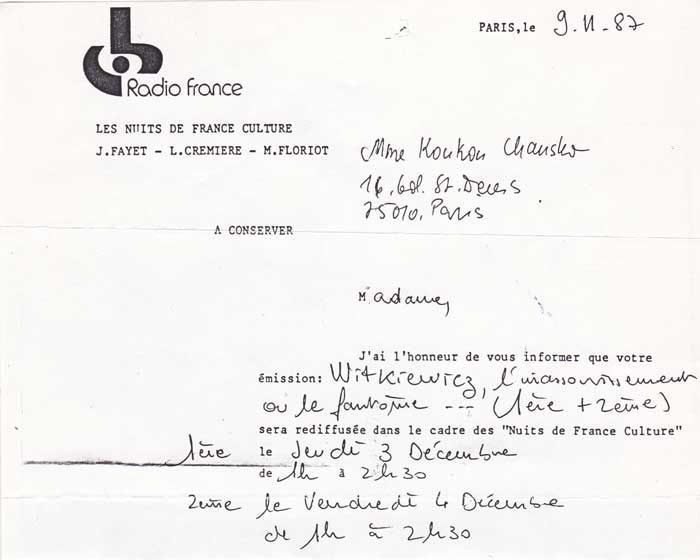 PARIS,le 9.11-87
Radio france
LES NUITS DE FRANCE CULTURE
J.FAYET - L.CREMIERE - M.FLORIOT
Mme Koukou Chanska
16, bd. St. Denis
75010, Paris
A CONSERVER
Madame,
J'ai l'honneur de vous informer que votre
émission: Witkiewicz, l'inassouvissement
ou le fantôme --- (1ère + 2ème)
sera rediffusée dans le cadre des "Nuits de France Culture"
1ère le Jeudi 3 Décembre
de 1h à 2h30
2ème le Vendredi 4 Décembre
de 1h à 2h30